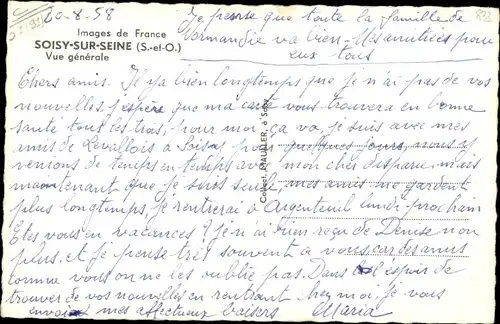 20-8-58
Je pense que toute la famille de
Normandie va bien - Mes amitiés pour
eux tous
Images de France
SOISY-SUR-SEINE (S.-et-O.)
Vue générale
Chers amis. Il y a bien longtemps que je n'ai pas de vos
nouvelles j'espère que ma carte vous trouvera en bonne
santé tous les trois, pour moi ça va, je suis avec mes
amis de Levallois à Soisy pour quelques jours, nous y
venions de temps en temps avec mon cher disparu, mais
maintenant que je suis seule, mes amis me gardent
plus longtemps, je rentrerai à Argenteuil lundi prochain
Etes vous en vacances? je n'ai rien reçu de Denise non
plus, et je pense très souvent à vous, car des amis
comme vous on ne les oublie pas. Dans l'espoir de
trouver de vos nouvelles en rentrant chez moi, je vous
envoie mes affectueux baisers Maria